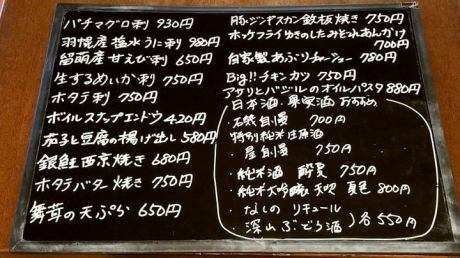 バチマグロ刺 930円
羽幌産塩水うに刺 980円
留萌産甘えび刺 650円
生するめいか刺 750円
ホタテ刺 750円
ボイルスナップエンドウ 420円
茄子と豆腐の揚げ出し 580円
銀鮭西京焼き 680円
ホタテバター焼き 750円
舞茸の天ぷら 650円
豚ジンギスカン鉄板焼き 750円
ホッケフライゆきのしたみぞれあんかけ
700円
自家製あぶりチャーシュー 780円
Big!!チキンカツ 750円
アサリとバジルのオイルパスタ 880円
日本酒・果実酒 おすすめ
・石鎚自慢 700円
特別純米生原酒
・屋自慢 750円
・純米酒 酔夏 750円
・純米大吟醸 天吹 夏色 800円
・なしの リキュール
・深山ぶどう酒
各550円